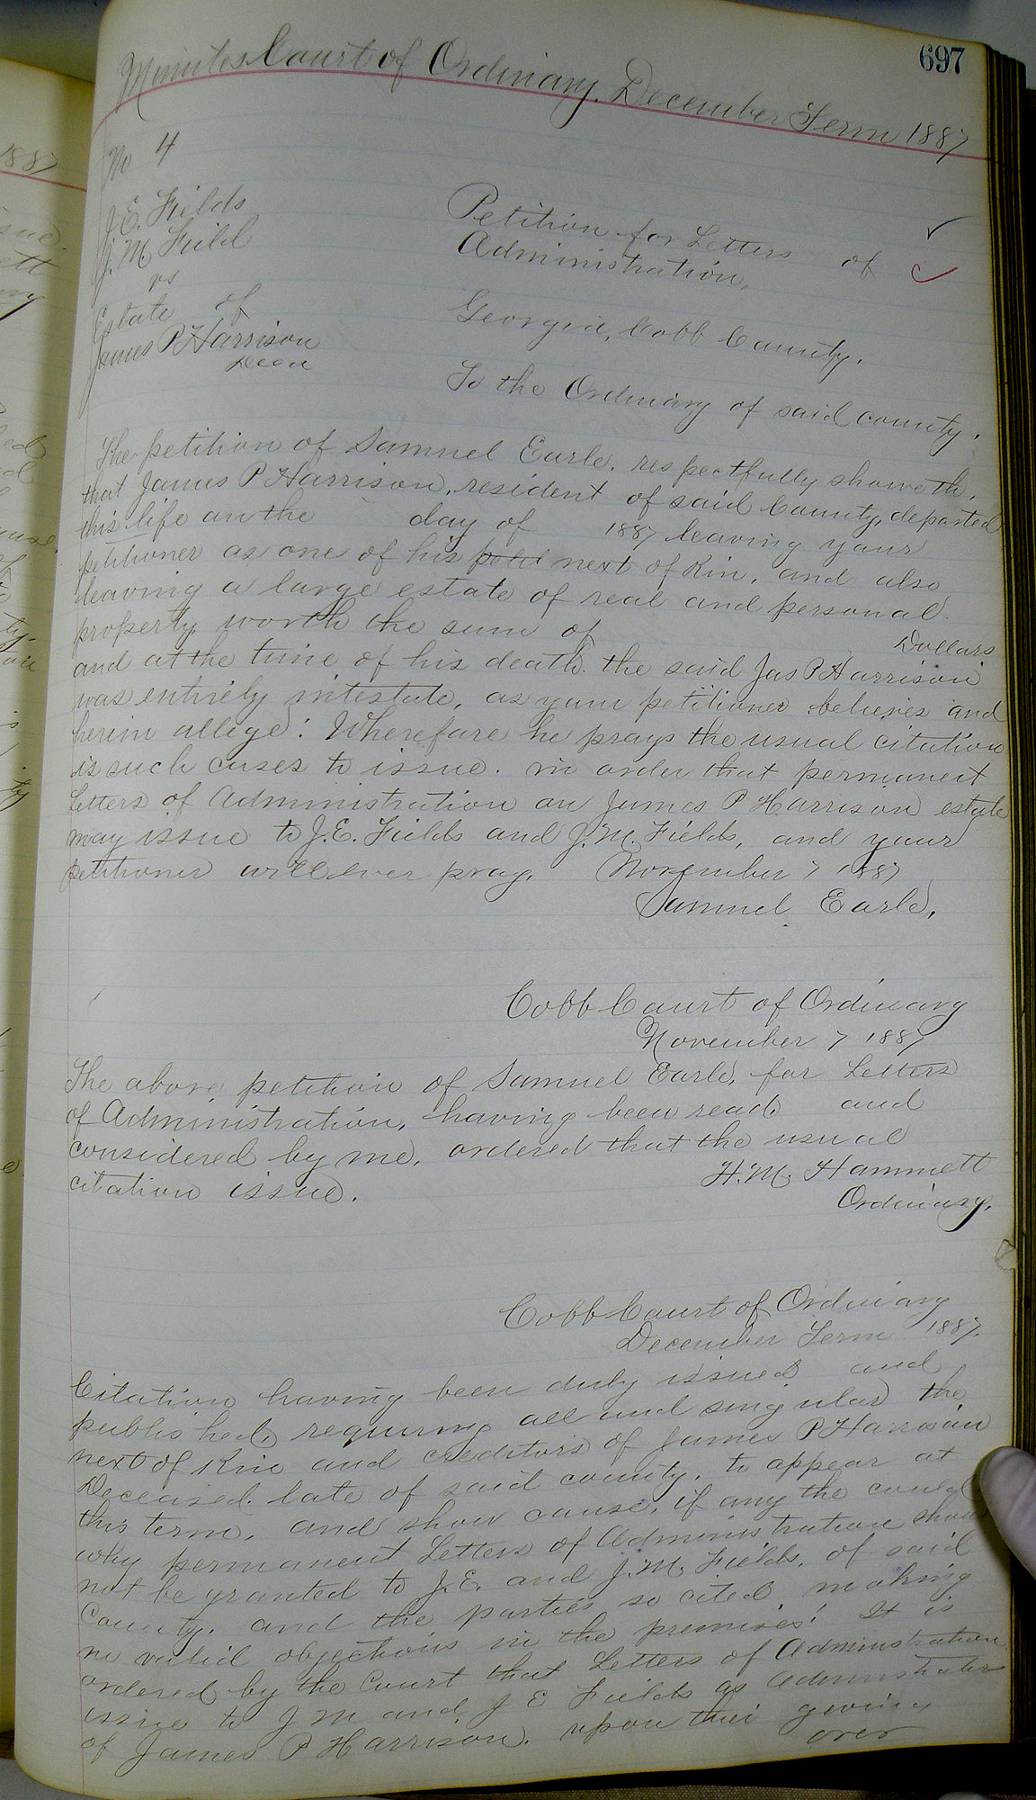 697
Minutes Court of Ordinary, December Term 1887
No 4
J. E. Fields
J. M. Field
vs
Estate of
James P Harrison
Decd
Petition for Letters of
Administration,
Georgia, Cobb County,
To the Ordinary of said county,
The petition of Samuel Earle, respectfully showeth,
that James P Harrison, resident of said County, departed
this life on the day of 1887 leaving your
petitioner as one of his next of Kin, and also
leaving a large estate of real and personal
property worth the sum of Dollars
and at the time of his death the said Jas P Harrison
was entirely intestate, as your petitioner believes and
herin allege: Wherefore he prays the usual citation
is such cases to issue. in order that permanent
Letters of Administration on James P Harrison estate
may issue to J. E. Fields and J. M. Fields, and your
petitioner will ever pray, November 7 1887
Samuel Earle,
Cobb Court of Ordinary
November 7 1887
The above petition of Samuel Earle, for Letters
of Administration, having been read and
considered by me, ordered that the usual
citation issue.
H. M. Hammett
Ordinary,
Cobb Court of Ordinary
December Term 1887.
Citation having been duly issued and
published requiring all and singular the
next of Kin and creditors of James P Harrison
Deceased. late of said county, to appear at
this term, and show cause, if any the could
why permanent Letters of Administration should
not be granted to J. E. and J. M. Fields, of said
County, and the parties so cited making
no valid objections in the premises! It is
ordered by the Court that Letters of Administration
issue to J M and J E Fields as Administrators
of James P Harrison, upon their giving
over